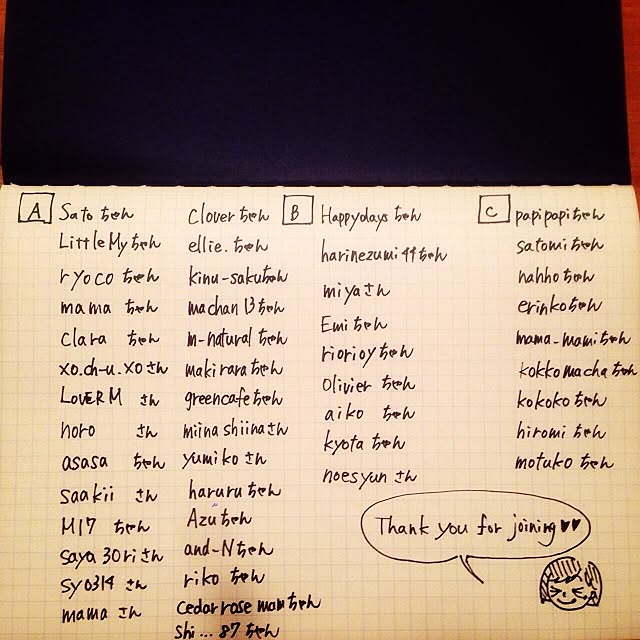 A
Sato ちゃん
LittleMy ちゃん
ryoco ちゃん
mama ちゃん
clara ちゃん
xo.ch-u.xo さん
LOVER M さん
noro さん
asasa ちゃん
saakii さん
M17 ちゃん
saya30ri さん
syo314 さん
mama さん
Clover ちゃん
ellie. ちゃん
kinu-saku ちゃん
machan13 ちゃん
m-natural ちゃん
makirara ちゃん
greencafe ちゃん
miinashiina さん
yumiko さん
haruru ちゃん
Azu ちゃん
and-N ちゃん
riko ちゃん
Cedar rose mam ちゃん
shi...87 ちゃん
B
Happydays ちゃん
harinezumi44 ちゃん
miya さん
Emi ちゃん
riorioy ちゃん
Olivier ちゃん
aiko ちゃん
kyota ちゃん
noesyun さん
C
papipapi ちゃん
satomi ちゃん
nahho ちゃん
erinko ちゃん
mama-mami ちゃん
kokkomacha ちゃん
kokoko ちゃん
hiromi ちゃん
motuko ちゃん
Thank you for joining♥♥